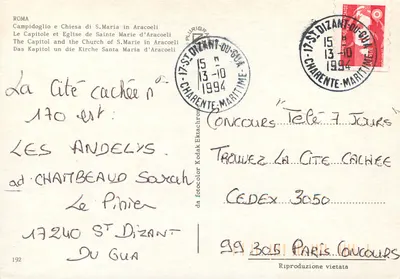 ROMA
Campidoglio e Chiesa di S. Maria in Aracoeli
Le Capitole et Eglise de Sainte Marie d'Aracoeli
The Capitol and the Church of S. Marie in Aracoeli
Das Kapitol un die Kirche Santa Maria d'Aracoeli
17-ST DIZANT-DU-GUA
15 H
13-10
1994
CHARENTE-MARITIME
17-ST DIZANT-DU-GUA
15 H
13-10
1994
CHARENTE-MARITIME
La Cité cachée n°
170 est:
LES ANDELYS.
CHAITBEAUD Sarah
Le Pinier
17240 ST DIZANT
DU GUA
da fotocolor Kodak Ektachrome
CONCOURS "Télé 7 JOURS"
TROUVEZ LA CITE CACHEE
CEDEX 3050
99305 PARIS CONCOURS
192
Riproduzione vietata